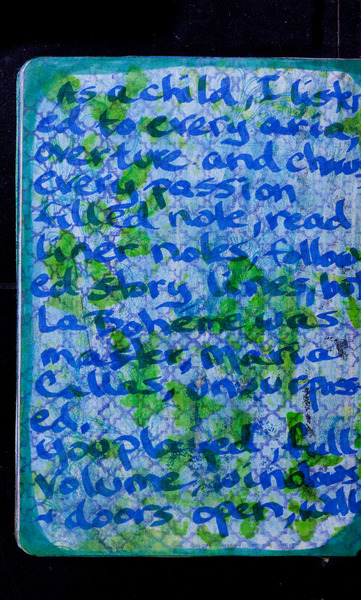 As a child, I
ed to every aria
overture and
every passion
filled note, read
liner notes, follow
ed story lines,
La Boheme was
master, Maria
Callas, unsurpass
ed.
You played, full
volume, windows
+ doors open,